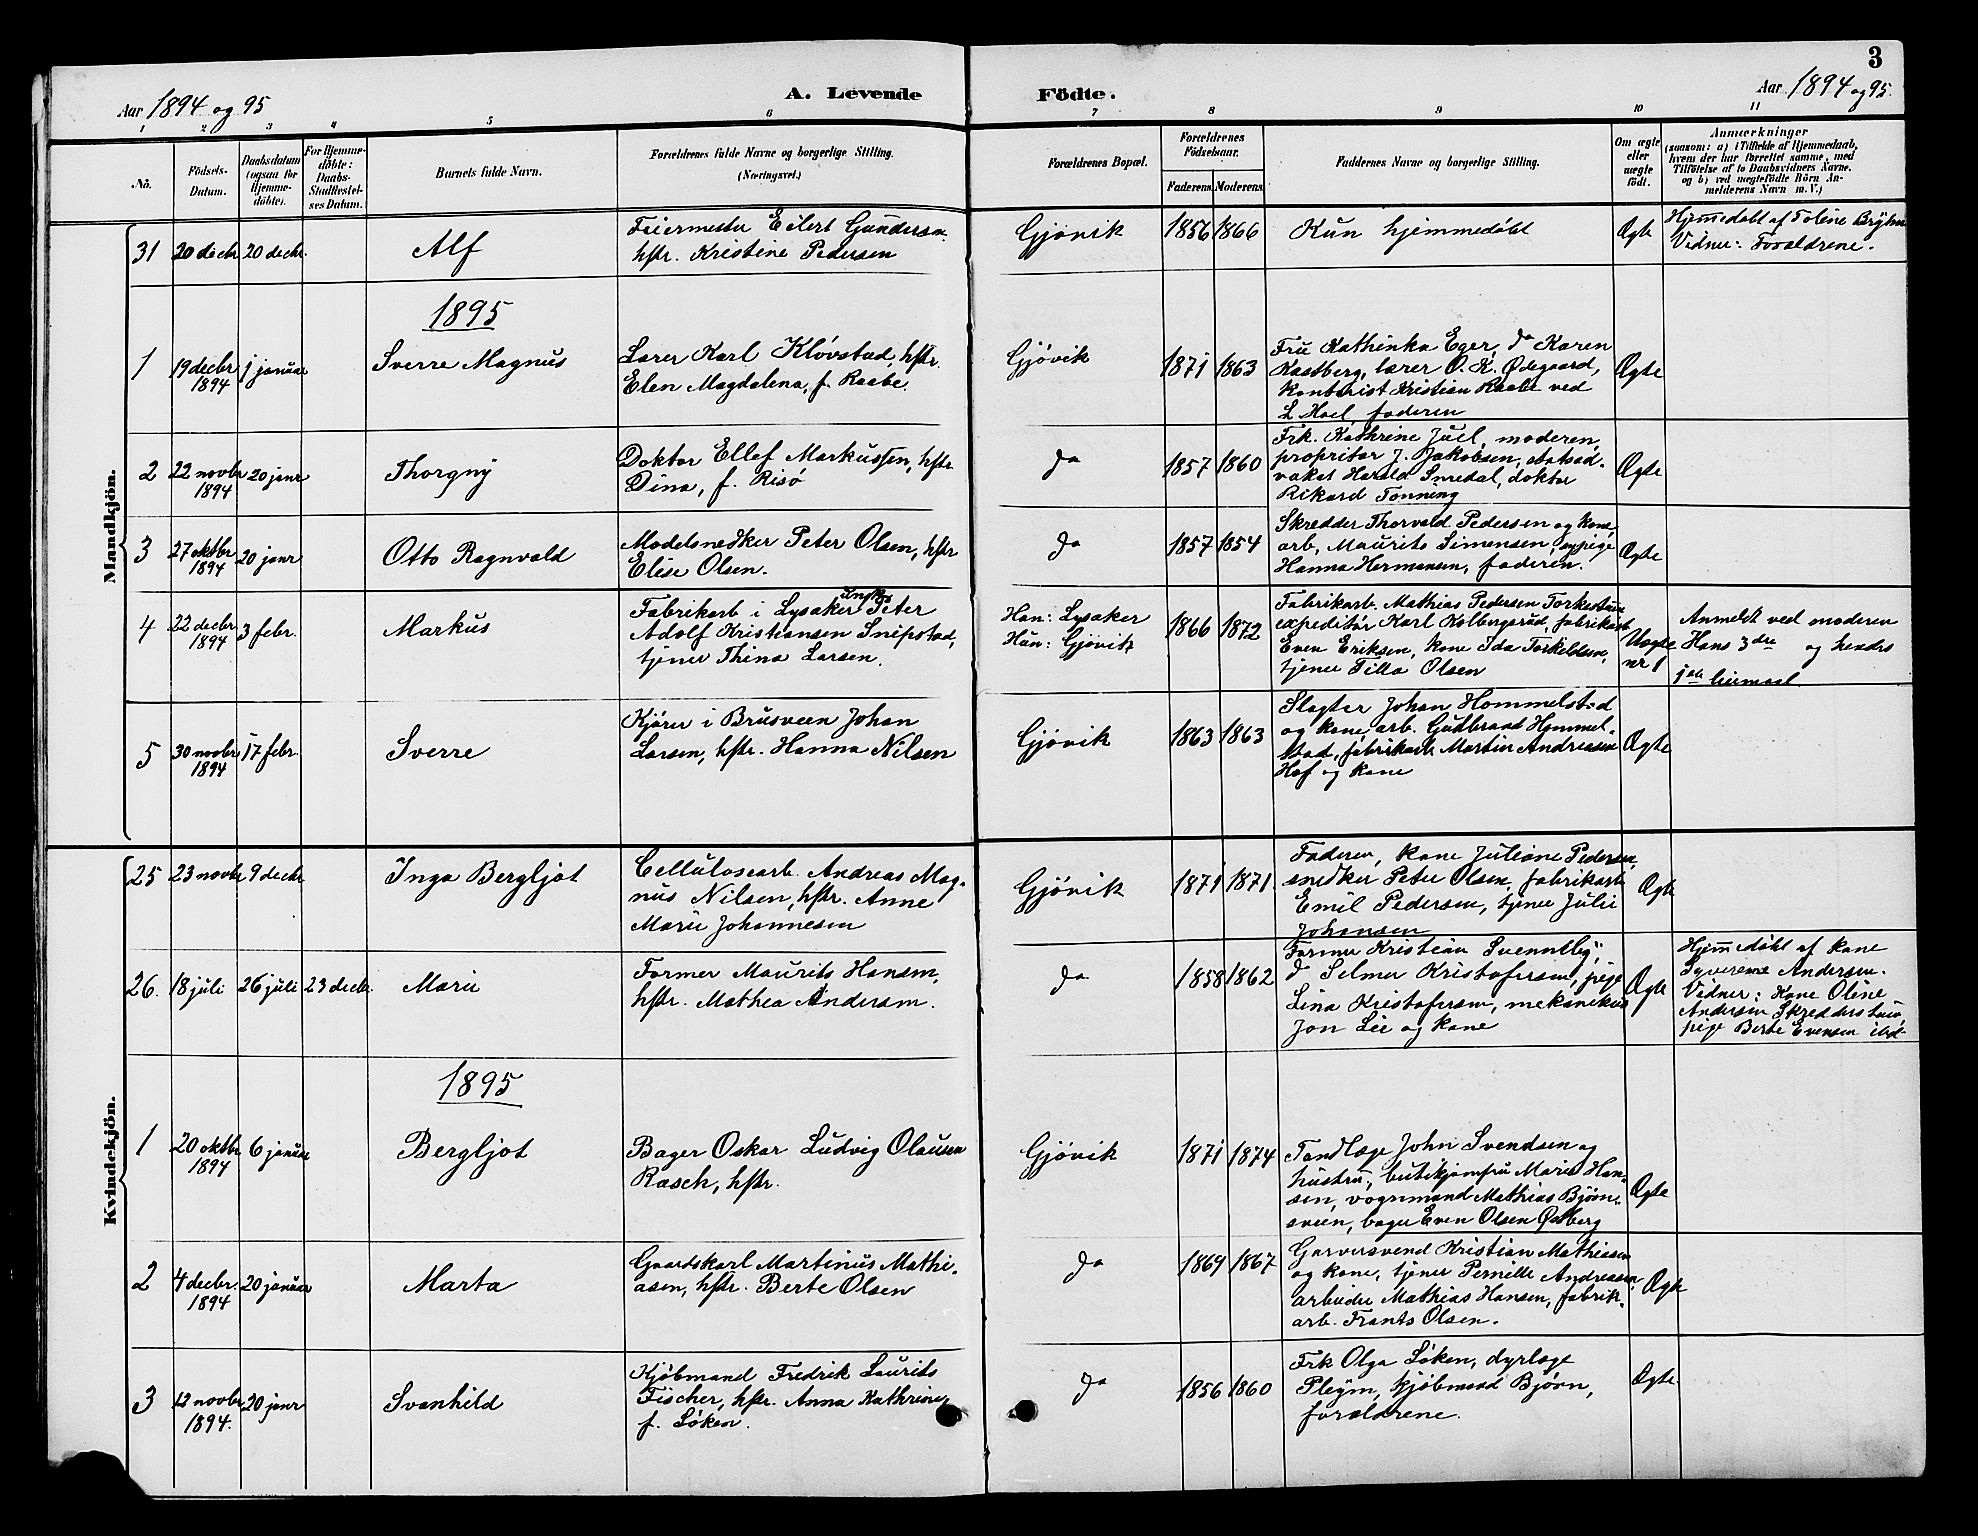 3
Aar 1894 og 95
A. Levende Födte.
Aar 1894 og 95.
1 2 3 4 5 6 7 8 9 10 11
No.
Födsels-Datum.
Daabsdatum (ogsaa for Hjemme-döbte).
For Hjemme-döbte: Daabs-Stadfestel-ses Datum.
Barnets fulde Navn.
Forældrenes fulde Navne og borgerlige Stilling.
(Næringsvei.)
Forældrenes Bopæl.
Forældrenes Födselsaar.
Faderens Moderens
Faddernes Navne og borgerlige Stilling.
Om ægte eller uægte födt.
Anmærkninger
(saasom: a) i Tilfælde af Hjemmedaab,
hvem der har forrettet samme, med
Tilföielse af to Daabsvidners Navne,
og b) ved uægtefödte Börn An-
melderens Navn m. V.)
Mandkjön.
31 20 decbr 20 decbr. Alf
Feiermester Eilert Gundersen,
hstr. Kristine Pedersen
Gjøvik 1856 1866 Kun hjemmedøbt Ægte
Hjemmedøbt af Toline
Vidner: Forældrene.
1895
1 19 decbr 1894 1 januar Sverre Magnus
Lærer Karl Kløvstad, hstr.
Elen Magdalena, f. Raabe.
Gjøvik 1871 1863
Fru Kathinka Eger, do Karen
Kastberg, lærer O. K. Ødegaard,
kontorist Kristian Raabe ved
L Hoel, faderen
Ægte
2 22 novbr 1894 20 janr Thorgny
Doktor Ellef Markussen, hstr
Dina, f. Risø
do 1857 1860
Frk. Kathrine Juel, moderen,
propritær J. Jakobsen, statsad-
vokat Harald Smedal, doktor
Rikard Tønning
Ægte
3 27 oktbr 1894 20 janr Otto Ragnvald
Modelsnedker Peter Olsen, hstr
Elise Olsen.
do 1857 1854
Skredder Thorvald Pedersen og kone,
arb. Maurits Simensen, pige
Hanna Hermansen, faderen.
Ægte
4 22 decbr. 1894 3 febr. Markus
Fabrikarb i Lysaker Peter
Adolf Kristiansen Snipstad,
tjener Thina Larsen.
Han: Lysaker
Hun: Gjøvik
1866 1872
Fabrikarb. Mathias Pedersen
expeditør Karl Kolbergsrud, fabrikarb
Even Eriksen, kone Ida Torkeldsen,
tjener Tilla Olsen
Uægte nr 1
Anmeldt ved moderen
Hans 3die og hendes
1ste leiermaal
5 30 novbr 1894 17 febr. Sverre
Kjører i Brusveen Johan
Larsen, hstr. Hanna Nilsen
Gjøvik 1863 1863
Slagter Johan Hommelstad
og kone, arb. Gudbrand Hymmel-
stad, fabrikarb. Martin Andreasen
Hof og kone
Ægte
Kvindekjön.
25 23 novbr 9 decbr Inga Bergljot
Cellulosearb. Andreas Mag-
nus Nilsen, hstr. Anne
Marie Johannesen
Gjøvik 1871 1871
Faderen, kone Juliane Pedersen,
snedker Peter Olsen, fabrikarb
Emil Pedersen, tjener Julie
Johansen
Ægte
26. 18 juli 26 juli 23 decbr. Marie
Former Maurits Hansen,
hstr. Mathea Andersen.
do 1858 1862
Former Kristian Svenneby,
do Selmer Kristofersen, pige
Lina Kristofersen, mekanikus
Jon Lie og kone
Ægte
Hjemmedøbt af kone
Andersen.
Vidner: Kone Oline
Andersen
pige Berte Evensen ibd.
1895
1 20 oktbr 1894 6 januar Bergljot
Bager Oskar Ludvig Olausen
Rasch, hstr.
Gjøvik 1871 1874
Tandlæge John Svendsen og
hustru, butikjomfru Marie Han-
sen, vognmand Mathias Bjørn-
sveen, bager Even Olsen Østberg
Ægte
2 4 decbr. 1894 20 januar Marta
Gaardskarl Martinus Mathi-
asen, hstr. Berte Olsen
do 1869 1867
Garversvend Kristian Mathiasen
og kone, tjener Pernille Andreasen,
arbeider Mathias Hansen, fabrik-
arb. Frants Olsen.
Ægte
3 12 novbr 1894. 20 janr Svanhild
Kjøbmand Fredrik Laurits
Fischer, hstr. Anna Kathrine,
f. Løken.
do 1856 1860
Frk Olga Løken, dyrlæge
Pleym, kjøbmand Bjørn,
forældrene.
Ægte